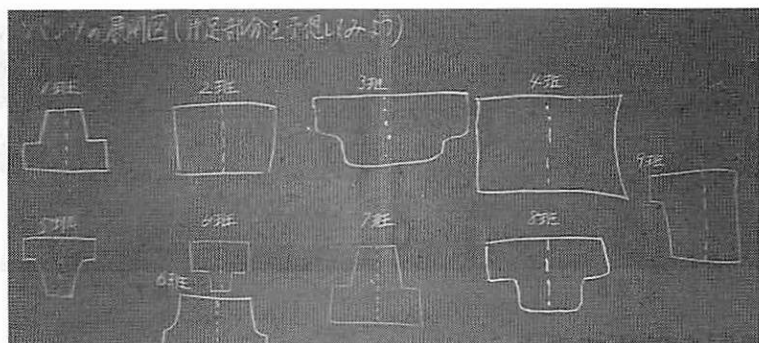 パンツの展開図(片足部分を予想してみよう)
1班
2班
3班
4班
9班
5班
6班
7班
8班
6班